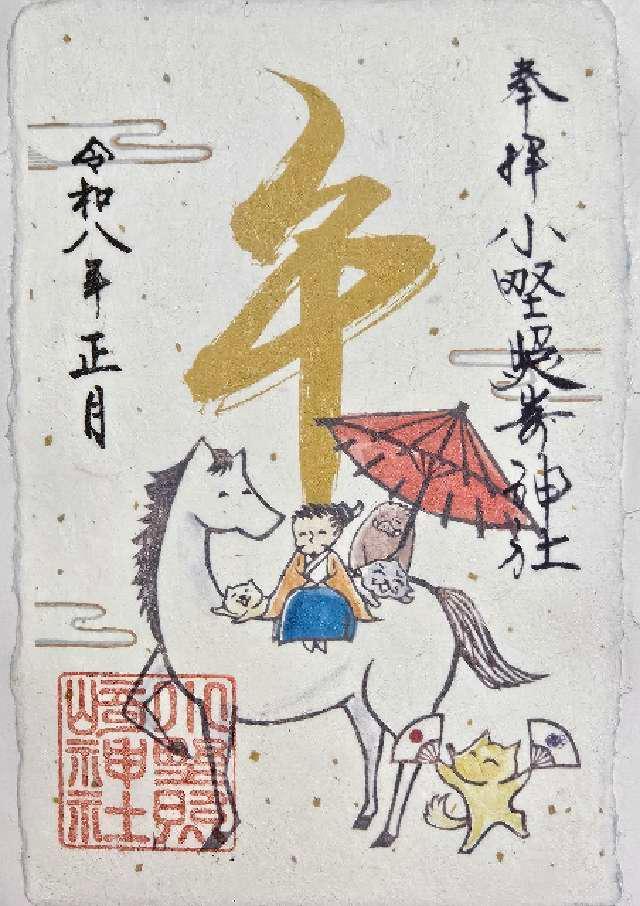 奉拝 小野照嵜神社
午
令和八年正月
小野照
崎神社